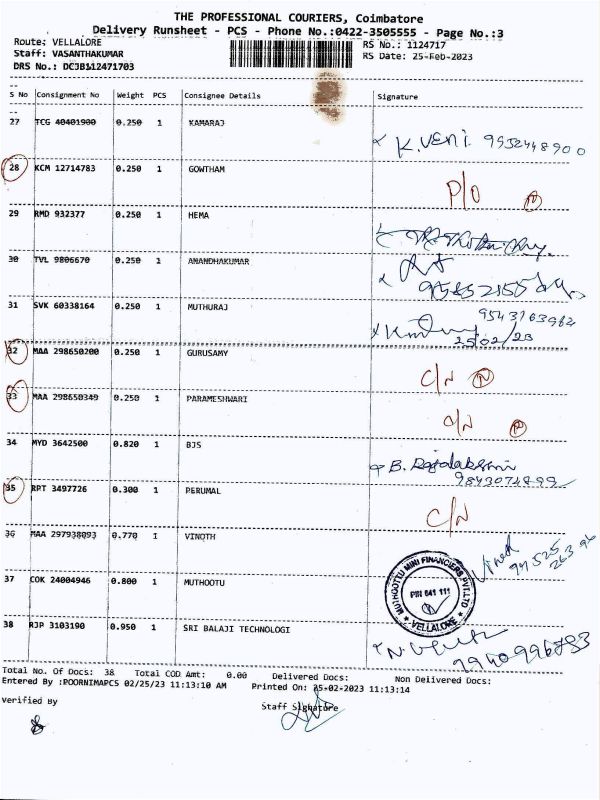 THE PROFESSIONAL COURIERS, Coimbatore
Delivery Runsheet - PCS - Phone No.:0422-3505555 - Page No.:3
Route: VELLALORE RS No.: 1124717
Staff: VASANTHAKUMAR RS Date: 25-Feb-2023
DRS No.: DCJB112471703
S No Consignment No Weight PCS Consignee Details Signature
27 TCG 40401900 0.250 1 KAMARAJ
x K.VENI. 9952448900
28 KCM 12714783 0.250 1 GOWTHAM
P/O
29 RMD 932377 0.250 1 HEMA
30 TVL 9806670 0.250 1 ANANDHAKUMAR
31 SVK 60338164 0.250 1 MUTHURAJ
9543163962
25/02/23
32 MAA 298650200 0.250 1 GURUSAMY
C/N N
33 MAA 298650349 0.250 1 PARAMESHWARI
34 MYD 3642500 0.820 1 BJS
B. Rajalakshmi
9843074899
35 RPT 3497726 0.300 1 PERUMAL
C/N
36 MAA 297938093 0.770 1 VINOTH
37 COK 24004946 0.800 1 MUTHOOTU
MUTHOOTTU MINI FINANCIERS PVT.LTD
PIN 641 111
* VELLALORE *
38 RJP 3103190 0.950 1 SRI BALAJI TECHNOLOGI
9940996783
Total No. Of Docs: 38 Total COD Amt: 0.00 Delivered Docs: Non Delivered Docs:
Entered By :POORNIMAPCS 02/25/23 11:13:10 AM Printed On: 25-02-2023 11:13:14
Verified By Staff Signature